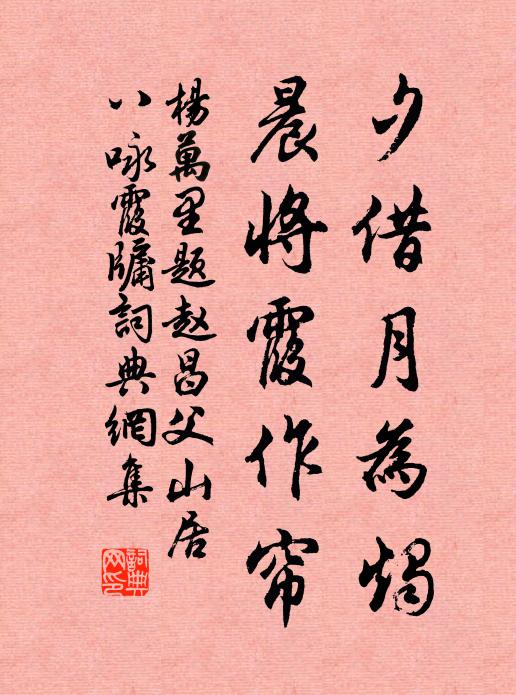 夕借月為燭
晨將霞作帘
楊萬里題赵昌父山居
八咏霞牗詞典網集
詞典網印